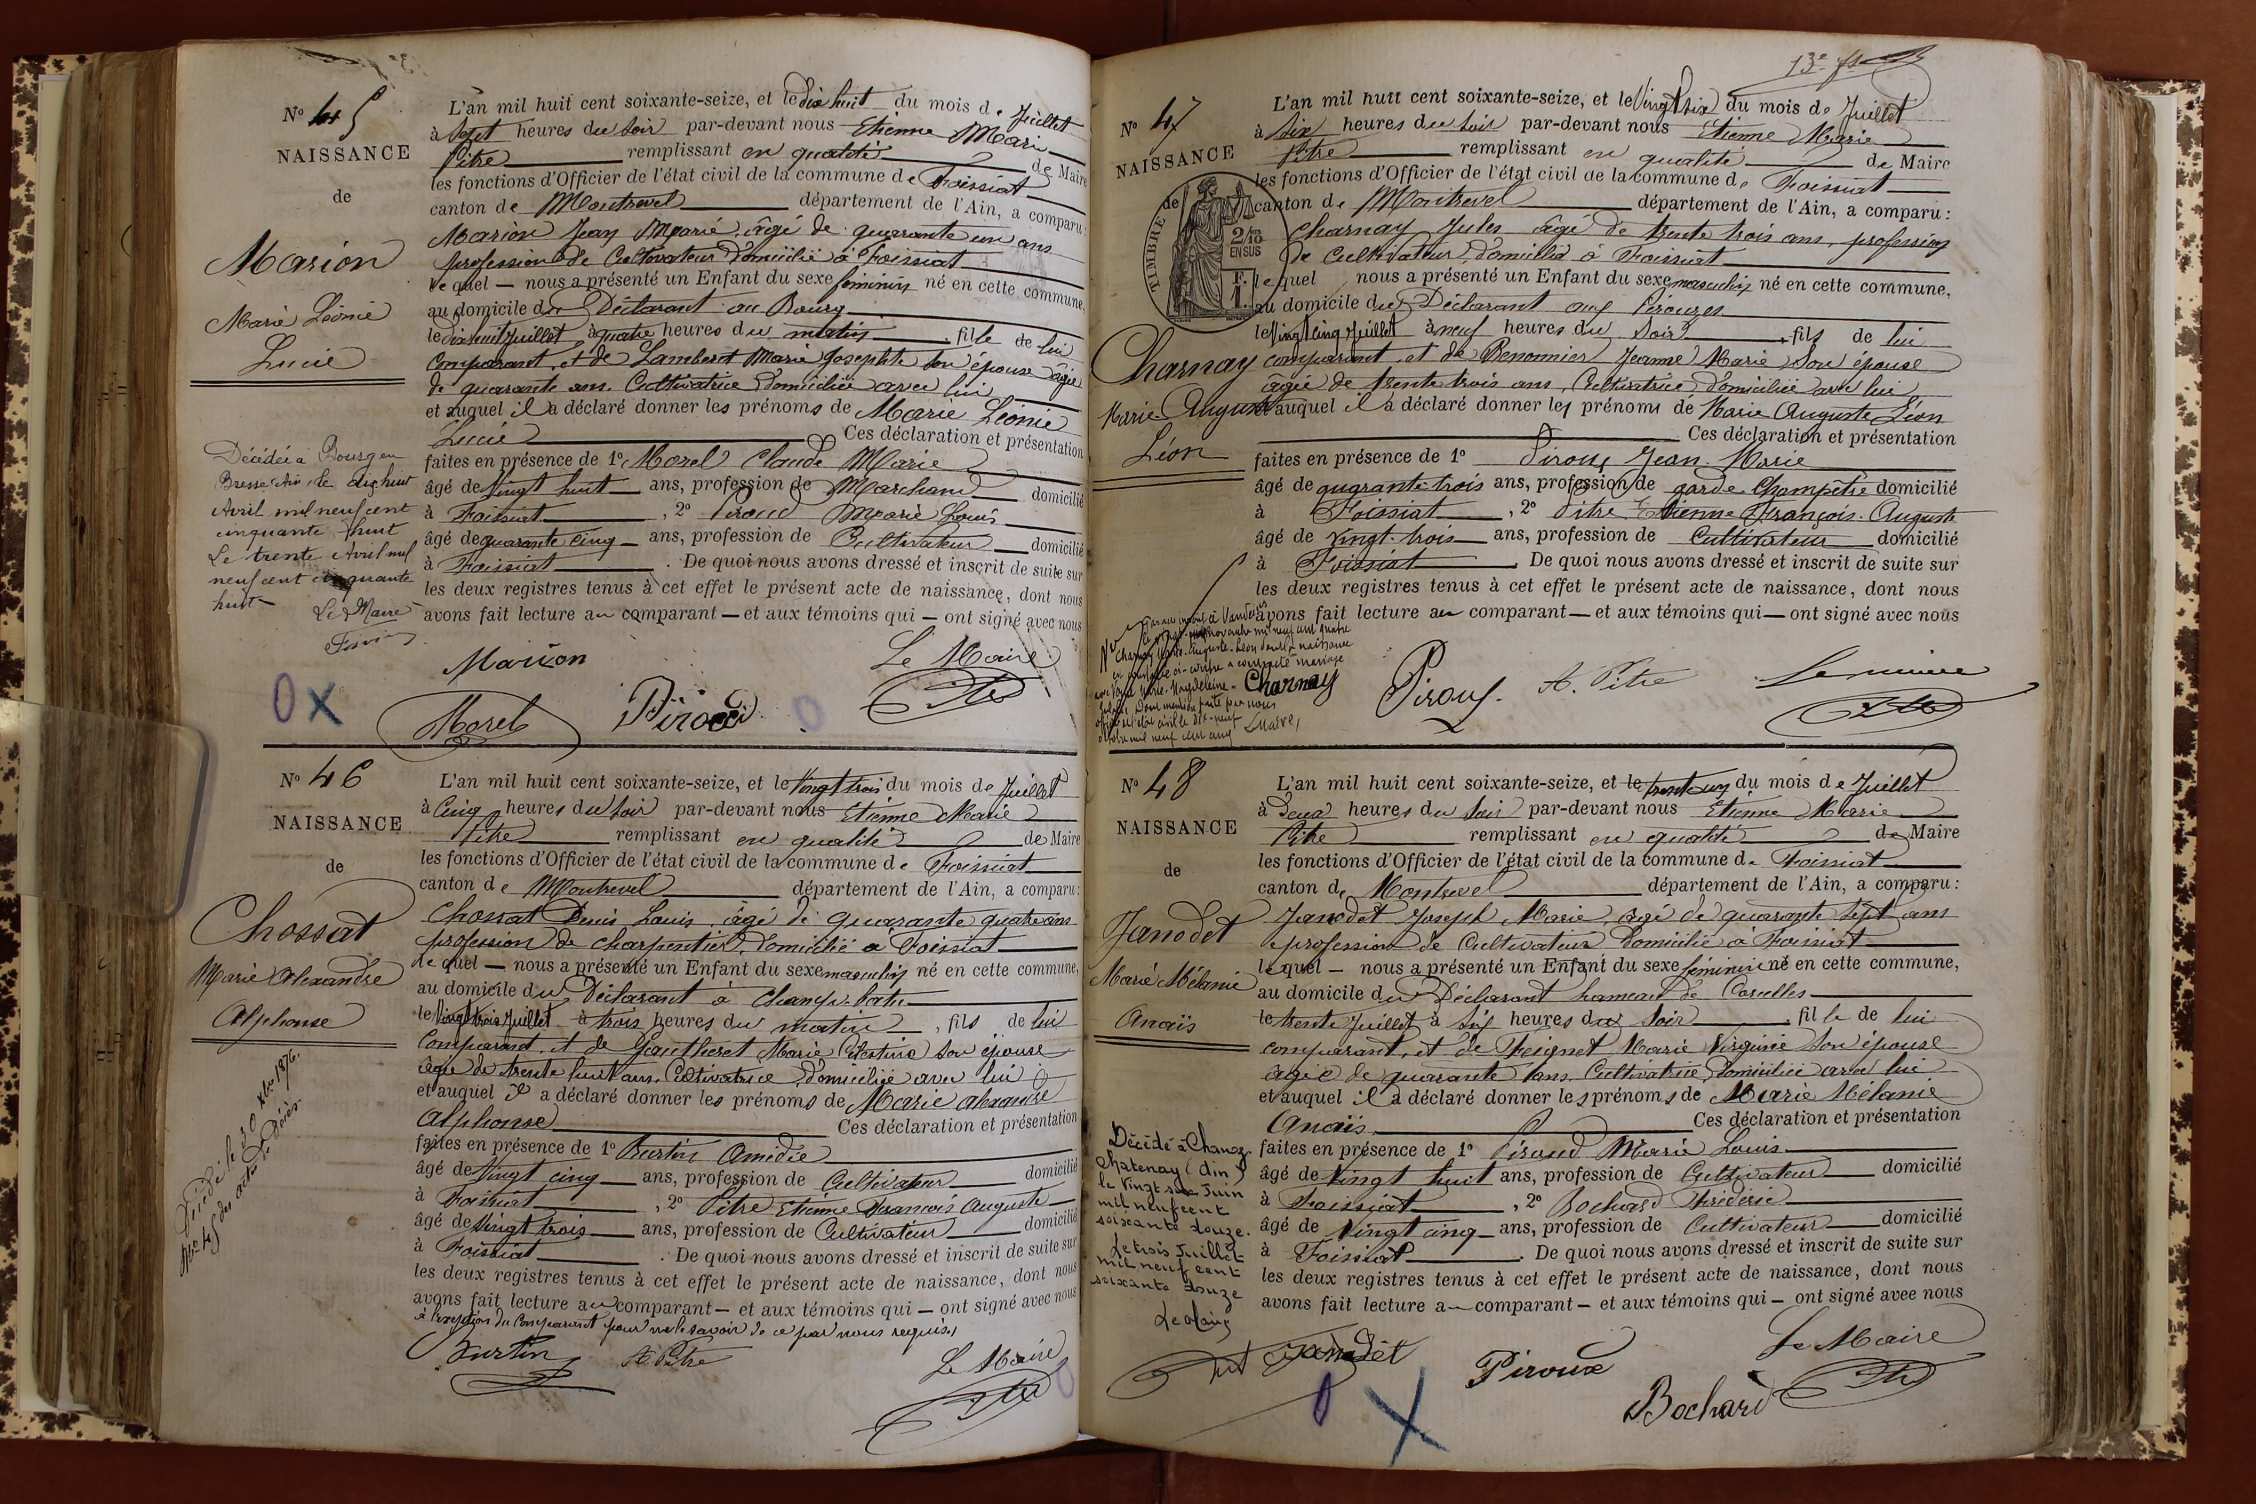 No 45
NAISSANCE
de
Marion
Marie Léonie
Lucie
Décédée à Bourg en
Bresse Ain, le dix huit
Avril mil neuf cent
cinquante huit
Le trente Avril mil
neuf cent cinquante
huit
Le Maire
L'an mil huit cent soixante-seize, et le dix huit du mois de Juillet
à Sept heures du soir par-devant nous Etienne Marie
Pitre remplissant en qualité de Maire
les fonctions d'Officier de l'état civil de la commune de Foissiat
canton de Montrevel département de l'Ain, a comparu:
Marion Jean Marie, âgé de quarante un ans
profession de Cultivateur Domicilié à Foissiat
lequel — nous a présenté un Enfant du sexe féminin né en cette commune,
au domicile du Déclarant au Bourg
le dix huit Juillet à quatre heures du matin, fille de lui
Comparant, et de Lambert Marie Josephte son épouse âgée
de quarante ans, Cultivatrice Domiciliée avec lui
et auquel il a déclaré donner les prénoms de Marie Léonie
Lucie Ces déclaration et présentation
faites en présence de 1o Morel Claude Marie
âgé de Vingt huit ans, profession de Marchand domicilié
à Foissiat, 2o Piroud Marie Louis
âgé de quarante cinq ans, profession de Cultivateur domicilié
à Foissiat. De quoi nous avons dressé et inscrit de suite sur
les deux registres tenus à cet effet le présent acte de naissance, dont nous
avons fait lecture au comparant — et aux témoins qui — ont signé avec nous
Marion Le Maire
Morel Piroud
No 46
NAISSANCE
de
Chossat
Marie Alexandre
Alphonse
Décédé le 30 Xbre 1876.
No 45 des actes de Décès.
L'an mil huit cent soixante-seize, et le Vingt trois du mois de Juillet
à Cinq heures du soir par-devant nous Etienne Marie
Pitre remplissant en qualité de Maire
les fonctions d'Officier de l'état civil de la commune de Foissiat
canton de Montrevel département de l'Ain, a comparu:
Chossat Denis Louis âgé de quarante quatre ans
profession de charpentier, domicilié à Foissiat
lequel — nous a présenté un Enfant du sexe masculin né en cette commune,
au domicile du Déclarant à
le Vingt trois Juillet à trois heures du matin, fils de lui
Comparant, et de Gautheret Marie Célestine son épouse
âgée de trente huit ans, Cultivatrice, domiciliée avec lui
et auquel il a déclaré donner les prénoms de Marie Alexandre
Alphonse Ces déclaration et présentation
faites en présence de 1o Burtin Amédée
âgé de Vingt cinq ans, profession de Cultivateur domicilié
à Foissiat, 2o Pitre Etienne François Auguste
âgé de Vingt trois ans, profession de Cultivateur domicilié
à Foissiat. De quoi nous avons dressé et inscrit de suite sur
les deux registres tenus à cet effet le présent acte de naissance, dont nous
avons fait lecture au comparant — et aux témoins qui — ont signé avec nous
à l'exception du Comparant pour ne le savoir de ce par nous requis.
Burtin A. Pitre Le Maire
13e
No 47
NAISSANCE
de
TIMBRE
2/10
EN SUS
F. 1.
Charnay
Marie Auguste
Léon
L'an mil huit cent soixante-seize, et le Vingt six du mois de Juillet
à six heures du soir par-devant nous Etienne Marie
Pitre remplissant en qualité de Maire
les fonctions d'Officier de l'état civil de la commune de Foissiat
canton de Montrevel département de l'Ain, a comparu:
Charnay Jules âgé de trente trois ans, profession
de Cultivateur, domicilié à Foissiat
lequel nous a présenté un Enfant du sexe masculin né en cette commune,
au domicile du Déclarant aux Pérouzes
le Vingt cinq Juillet à neuf heures du soir, fils de lui
comparant, et de Benonnier Jeanne Marie Son épouse
âgée de trente trois ans, Cultivatrice, domiciliée avec lui
et auquel il a déclaré donner les prénoms de Marie Auguste Léon
Ces déclaration et présentation
faites en présence de 1o Piroux Jean Marie
âgé de quarante trois ans, profession de garde Champêtre domicilié
à Foissiat, 2o Pitre Etienne François Auguste
âgé de vingt trois ans, profession de Cultivateur domicilié
à Foissiat. De quoi nous avons dressé et inscrit de suite sur
les deux registres tenus à cet effet le présent acte de naissance, dont nous
avons fait lecture au comparant — et aux témoins qui — ont signé avec nous
Charnay Piroux A. Pitre Le maire
No 48
NAISSANCE
de
Janodet
Marie Mélanie
Anaïs
Décédé à Chanoz
Chatenay (Ain)
le Vingt Juin
mil neuf cent
soixante douze.
Le trois Juillet
mil neuf cent
soixante douze
L'an mil huit cent soixante-seize, et le trente un du mois de Juillet
à Deux heures du soir par-devant nous Etienne Marie
Pitre remplissant en qualité de Maire
les fonctions d'Officier de l'état civil de la commune de Foissiat
canton de Montrevel département de l'Ain, a comparu:
Janodet Joseph Marie, âgé de quarante sept ans
profession de Cultivateur Domicilié à Foissiat
lequel — nous a présenté un Enfant du sexe féminin né en cette commune,
au domicile du Déclarant hameau de Carelles
le trente Juillet à Six heures du Soir, fille de lui
comparant, et de Feignet Marie Virginie Son épouse
âgée de quarante ans, Cultivatrice, Domiciliée avec lui
et auquel il a déclaré donner les prénoms de Marie Mélanie
Anaïs Ces déclaration et présentation
faites en présence de 1o Piroud Marie Louis
âgé de Vingt huit ans, profession de Cultivateur domicilié
à Foissiat, 2o Bochard Frédéric
âgé de Vingt cinq ans, profession de Cultivateur domicilié
à Foissiat. De quoi nous avons dressé et inscrit de suite sur
les deux registres tenus à cet effet le présent acte de naissance, dont nous
avons fait lecture au comparant — et aux témoins qui — ont signé avec nous
Janodet Piroux Le Maire
Bochard